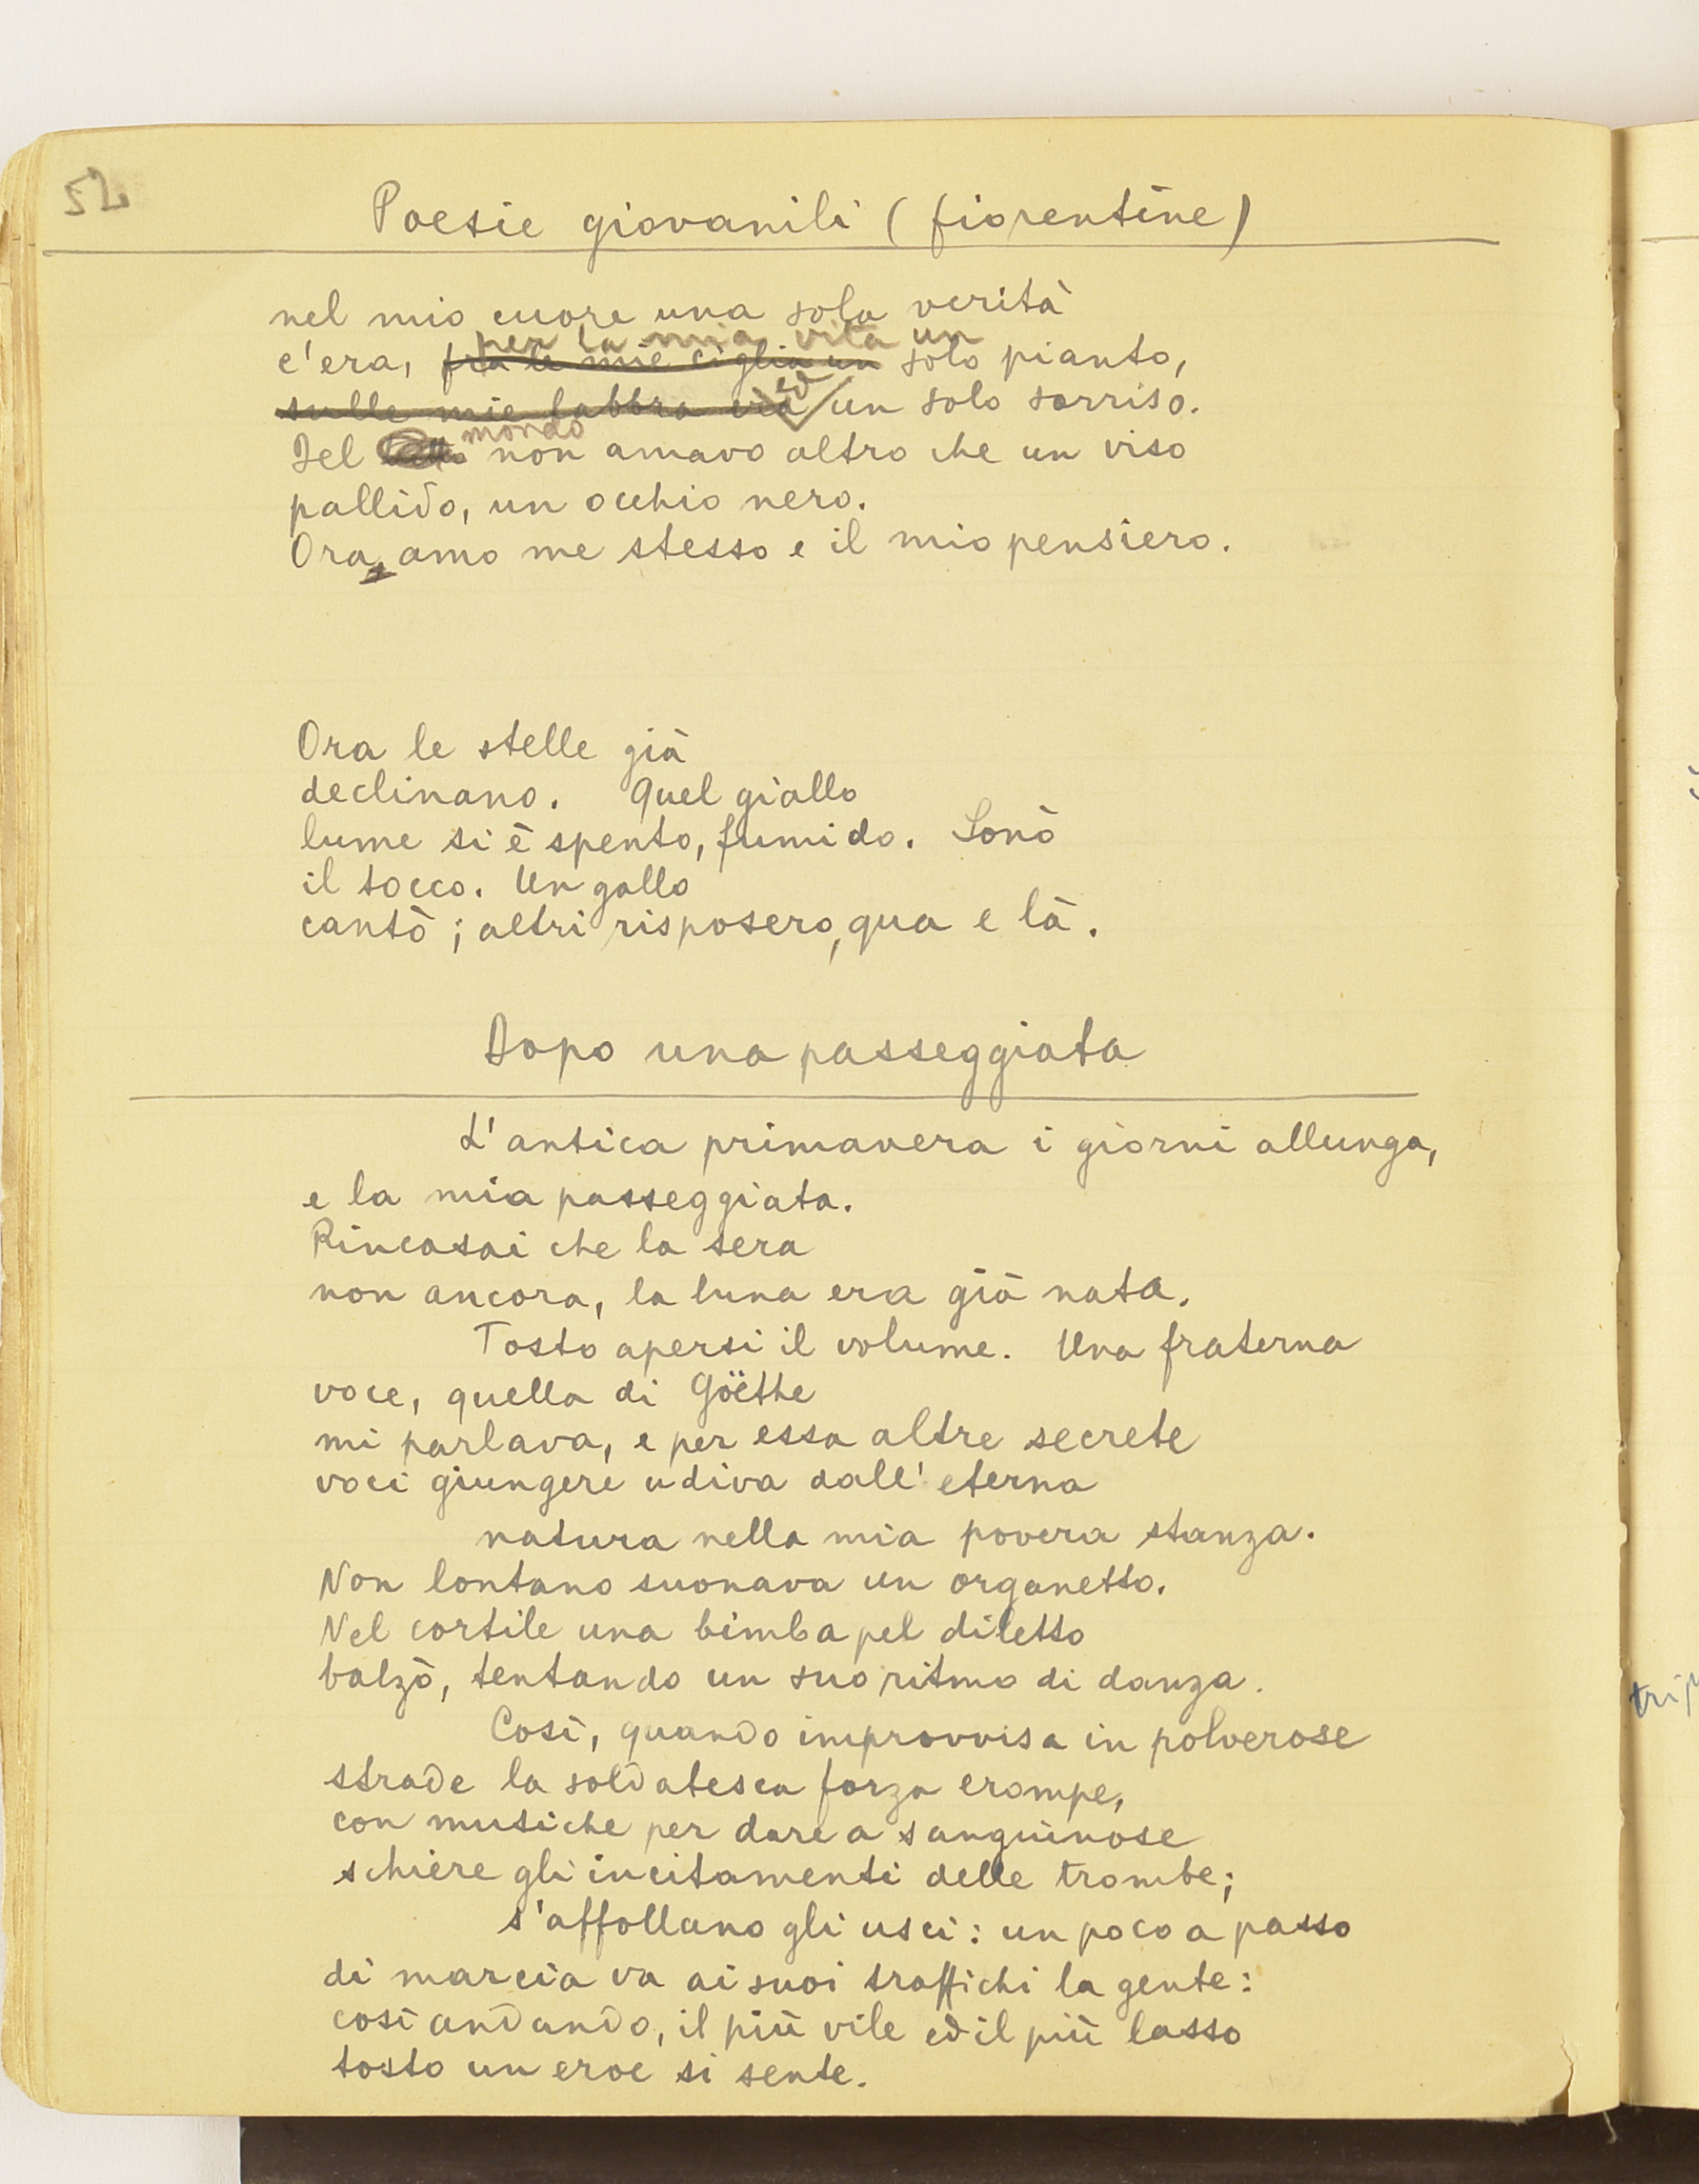 52
Poesie giovanili (fiorentine)
nel mio cuore una sola verità
per la mia vita un
c'era, fra le mie ciglia un solo pianto,
ed
sulle mie labbra era un solo sorriso.
mondo
Del non amavo altro che un viso
pallido, un occhio nero.
Ora amo me stesso e il mio pensiero.
Ora le stelle già
declinano. Quel giallo
lume si è spento, fumido. Sonò
il tocco. Un gallo
cantò; altri risposero, qua e là.
Dopo una passeggiata
L'antica primavera i giorni allunga,
e la mia passeggiata.
Rincasai che la sera
non ancora, la luna era già nata.
Tosto apersi il volume. Una fraterna
voce, quella di Göethe
mi parlava, e per essa altre secrete
voci giungere udiva dall'eterna
natura nella mia povera stanza.
Non lontano suonava un organetto.
Nel cortile una bimba pel diletto
balzò, tentando un suo ritmo di danza.
Così, quando improvvisa in polverose
strade la soldatesca forza erompe,
con musiche per dare a sanguinose
schiere gli incitamenti delle trombe;
s'affollano gli usci: un poco a passo
di marcia va ai suoi traffichi la gente:
così andando, il più vile ed il più lasso
tosto un eroe si sente.